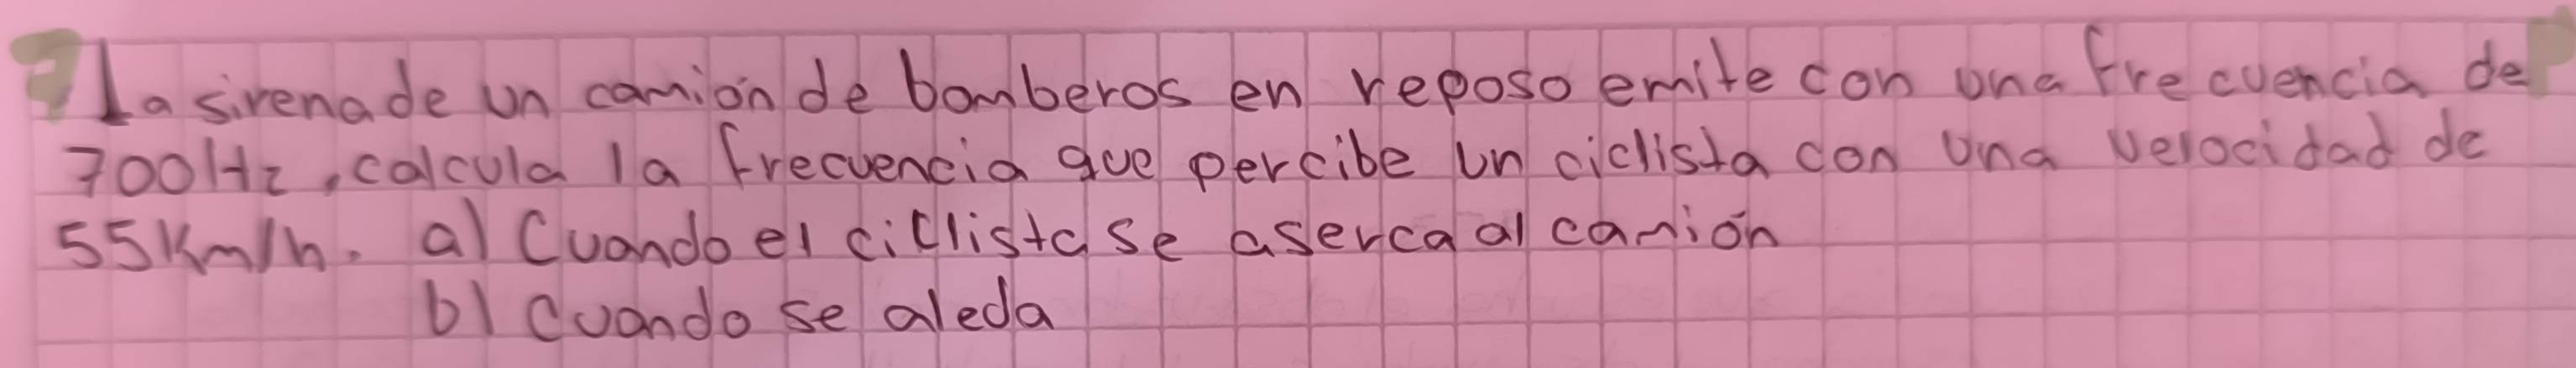 7 La sirena de un camión de bomberos en reposo emite con una frecuencia de
700Hz, calcula la frecuencia que percibe un ciclista con una velocidad de
55Km/h. a) Cuando el ciclista se aserca al camión
b) Cuando se aleda